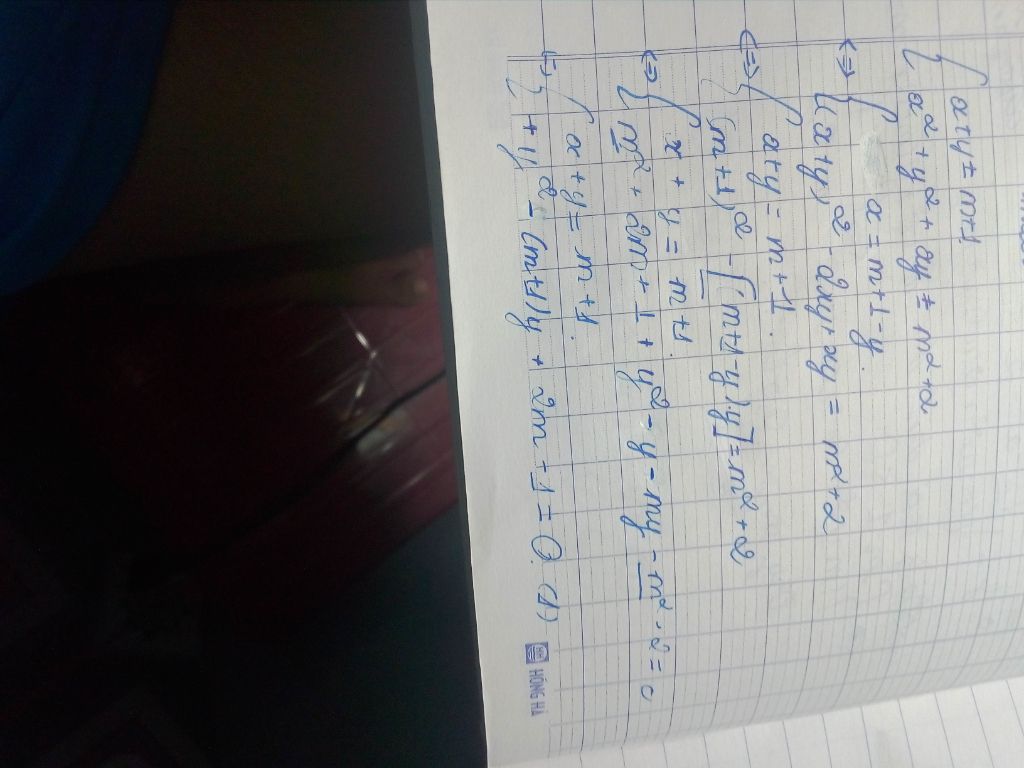 { x+y = m+1
x² + y² + xy = m² + 2
<=> { x = m+1-y.
(x+y)² - 2xy + xy = m² + 2
<=> { x+y = m+1.
(m+1)² - [(m+1-y).y] = m² + 2
<=> { x + y = m+1.
m² + 2m + 1 + y² - y - my - m² - 2 = 0
=> { x + y = m + 1.
+ y² - (m+1)y + 2m - 1 = 0. (1)
HH HỒNG HÀ